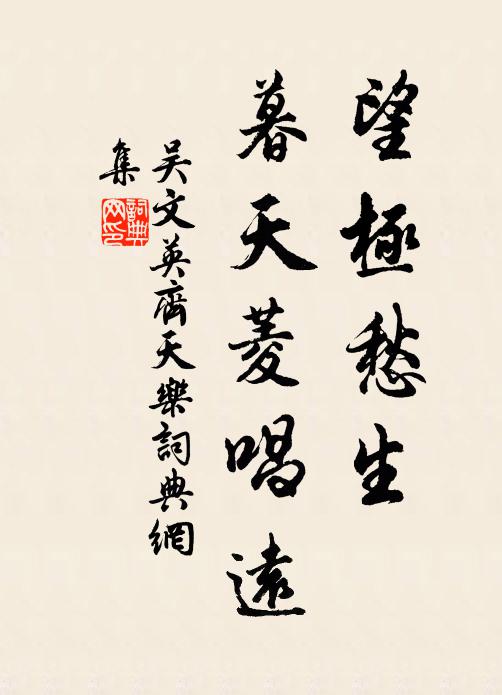 望極愁生
暮天菱唱遠
吳文英齊天樂詞典網
集
詞典
网印